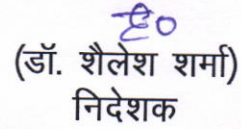 ह०
(डॉ. शैलेश शर्मा)
निदेशक